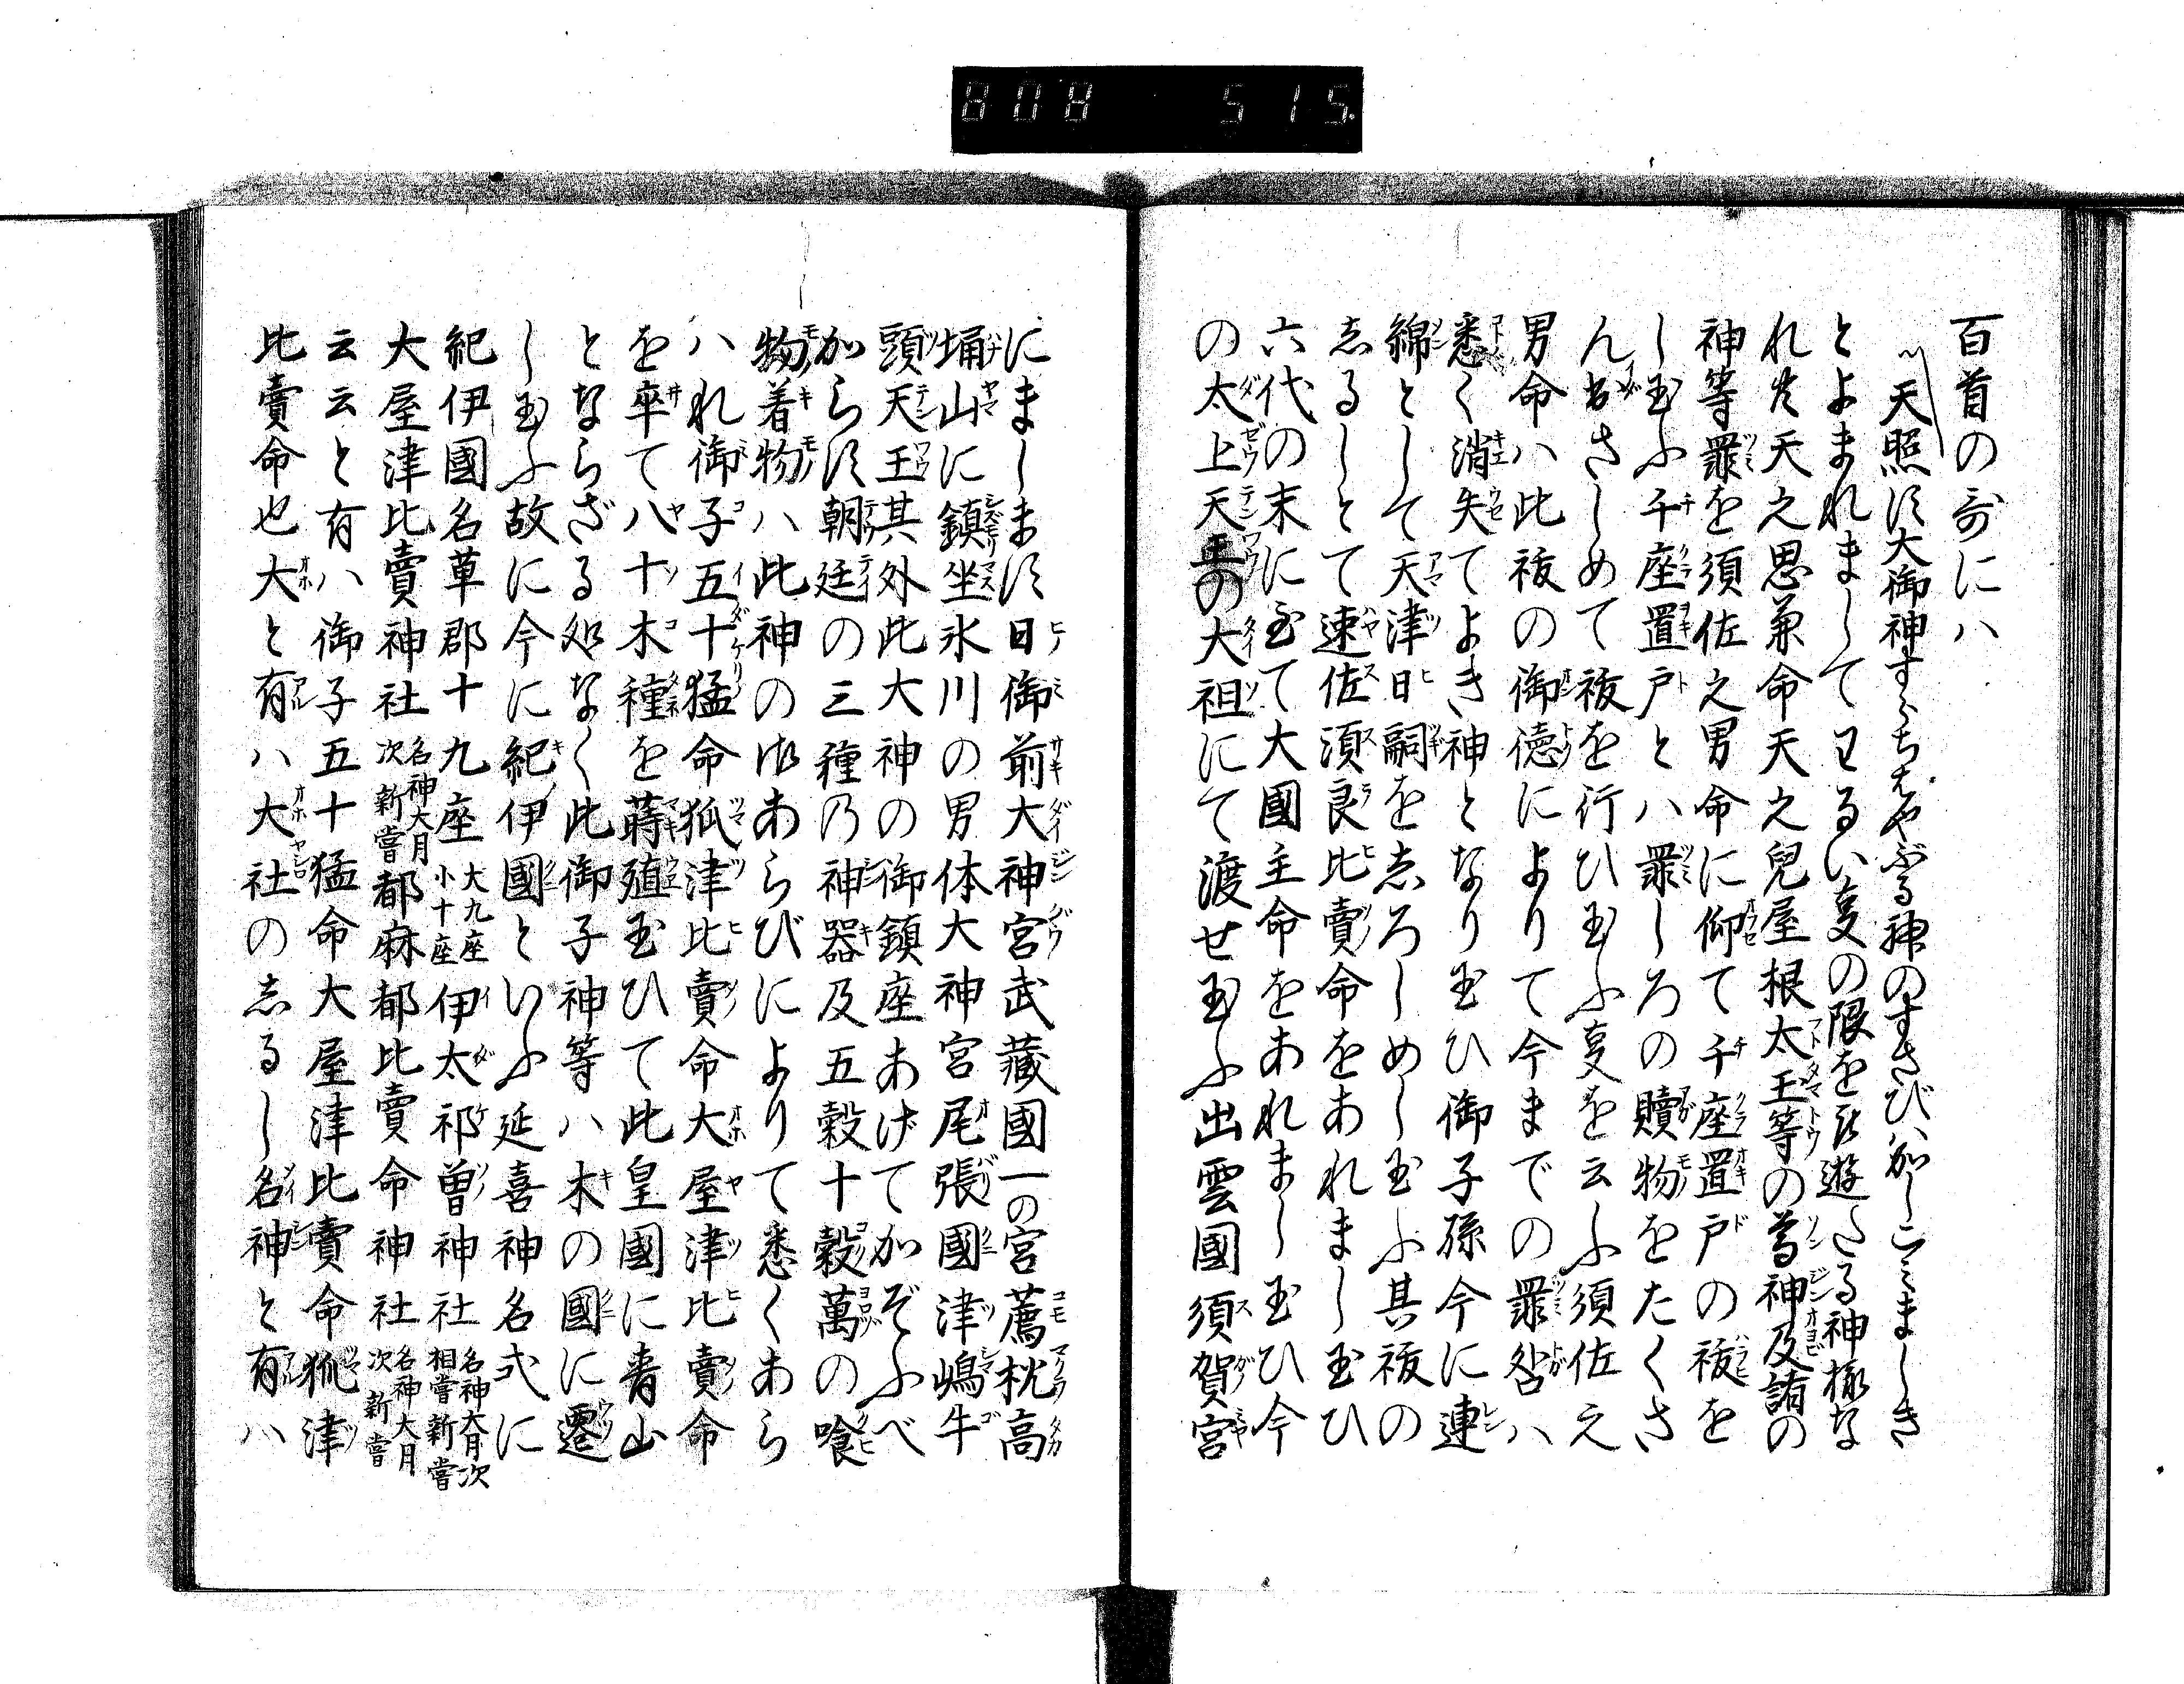 808 515
百首の哥にハ
天照す大御神すらちはやぶる神のすさびハかしこみましき
とよまれましてわるい事の限を遊たる神様な
れ共天之思兼命天之兒屋根太玉等の尊神及諸の
神等罪を須佐之男命に仰て千座置戸の祓を
し玉ふ千座置戸とハ罪しろの贖物をたくさ
ん出さしめて祓を行ひ玉ふ事を云ふ須佐之
男命ハ此祓の御徳によりて今までの罪咎ハ
悉く消失てよき神となり玉ひ御子孫今に連
綿として天津日嗣をしろしめし玉ふ其祓の
しるしとて速佐須良比賣命をあれまし玉ひ
六代の末に至て大國主命をあれまし玉ひ今
の太上天王の大祖にて渡せ玉ふ出雲國須賀宮
にまします日御前大神宮武藏國一の宮薦枕高
埇山に鎮坐氷川の男体大神宮尾張國津嶋牛
頭天王其外此大神の御鎮座あげてかぞふべ
からす朝廷の三種乃神器及五穀十穀萬の喰
物着物ハ此神の御あらびによりて悉くあら
ハれ御子五十猛命狐津比賣命大屋津比賣命
を率て八十木種を蒔殖玉ひて此皇國に青山
とならざる処なく此御子神等ハ木の國に遷
し玉ふ故に今に紀伊國といふ延喜神名式に
紀伊國名草郡十九座大九座小十座伊太祁曽神社名神大月次相嘗新嘗
大屋津比賣神社名神大月次新嘗都麻都比賣命神社名神大月次新嘗
云云と有ハ御子五十猛命大屋津比賣命狐津
比賣命也大と有ハ大社のしるし名神と有ハ